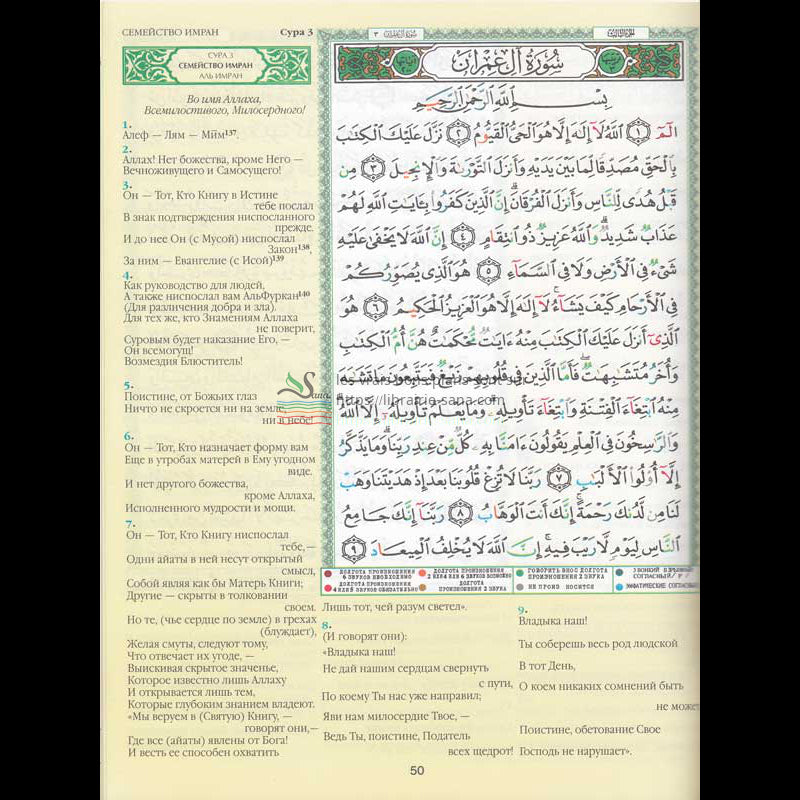 СЕМЕЙСТВО ИМРАН
Сура 3
СУРА 3
СЕМЕЙСТВО ИМРАН
АЛЬ ИМРАН
Во имя Аллаха,
Всемилостивого, Милосердного!
1.
Алеф — Лям — Мйм137.
2.
Аллах! Нет божества, кроме Него —
Вечноживущего и Самосущего!
3.
Он — Тот, Кто Книгу в Истине
тебе послал
В знак подтверждения ниспосланного
прежде.
И до нее Он (с Мусой) ниспослал
Закон138,
За ним — Евангелие (с Исой)139
4.
Как руководство для людей,
А также ниспослал вам АльФуркан140
(Для различения добра и зла).
Для тех же, кто Знамениям Аллаха
не поверит,
Суровым будет наказание Его, —
Он всемогущ!
Возмездия Блюститель!
5.
Поистине, от Божьих глаз
Ничто не скроется ни на земле,
ни в небе!
6.
Он — Тот, Кто назначает форму вам
Еще в утробах матерей в Ему угодном
виде.
И нет другого божества,
кроме Аллаха,
Исполненного мудрости и мощи.
7.
Он — Тот, Кто Книгу ниспослал
тебе,—
Одни айаты в ней несут открытый
смысл,
Собой являя как бы Матерь Книги;
Другие — скрыты в толковании
своем.
Но те, (чье сердце по земле) в грехах
(блуждает),
Желая смуты, следуют тому,
Что отвечает их угоде, —
Выискивая скрытое значенье,
Которое известно лишь Аллаху
И открывается лишь тем,
Которые глубоким знанием владеют.
«Мы веруем в (Святую) Книгу, —
говорят они,—
Где все (айаты) явлены от Бога!
И весть ее способен охватить
سُورَةُ آلِ عِمْرَانَ
بِسْمِ اللَّهِ الرَّحْمَٰنِ الرَّحِيمِ
الٓمٓ ١ اللَّهُ لَا إِلَٰهَ إِلَّا هُوَ الْحَيُّ الْقَيُّومُ ٢ نَزَّلَ عَلَيْكَ الْكِتَٰبَ
بِالْحَقِّ مُصَدِّقًا لِّمَا بَيْنَ يَدَيْهِ وَأَنزَلَ التَّوْرَىٰةَ وَالْإِنجِيلَ ٣ مِن
قَبْلُ هُدًى لِّلنَّاسِ وَأَنزَلَ الْفُرْقَانَ إِنَّ الَّذِينَ كَفَرُوا بِـَٔايَٰتِ اللَّهِ لَهُمْ
عَذَابٌ شَدِيدٌ وَاللَّهُ عَزِيزٌ ذُو انتِقَامٍ ٤ إِنَّ اللَّهَ لَا يَخْفَىٰ عَلَيْهِ
شَىْءٌ فِى الْأَرْضِ وَلَا فِى السَّمَآءِ ٥ هُوَ الَّذِى يُصَوِّرُكُمْ
فِى الْأَرْحَامِ كَيْفَ يَشَآءُ لَآ إِلَٰهَ إِلَّا هُوَ الْعَزِيزُ الْحَكِيمُ ٦ هُوَ
الَّذِىٓ أَنزَلَ عَلَيْكَ الْكِتَٰبَ مِنْهُ ءَايَٰتٌ مُّحْكَمَٰتٌ هُنَّ أُمُّ الْكِتَٰبِ
وَأُخَرُ مُتَشَٰبِهَٰتٌ فَأَمَّا الَّذِينَ فِى قُلُوبِهِمْ زَيْغٌ فَيَتَّبِعُونَ مَا تَشَٰبَهَ
مِنْهُ ابْتِغَآءَ الْفِتْنَةِ وَابْتِغَآءَ تَأْوِيلِهِ وَمَا يَعْلَمُ تَأْوِيلَهُ إِلَّا اللَّهُ
وَالرَّٰسِخُونَ فِى الْعِلْمِ يَقُولُونَ ءَامَنَّا بِهِ كُلٌّ مِّنْ عِندِ رَبِّنَا وَمَا يَذَّكَّرُ
إِلَّآ أُولُوا الْأَلْبَٰبِ ٧ رَبَّنَا لَا تُزِغْ قُلُوبَنَا بَعْدَ إِذْ هَدَيْتَنَا وَهَبْ
لَنَا مِن لَّدُنكَ رَحْمَةً إِنَّكَ أَنتَ الْوَهَّابُ ٨ رَبَّنَآ إِنَّكَ جَامِعُ
النَّاسِ لِيَوْمٍ لَّا رَيْبَ فِيهِ إِنَّ اللَّهَ لَا يُخْلِفُ الْمِيعَادَ ٩
Sana
les vrais bons plans sont sur
https://librairie-sana.com
ДОЛГОТА ПРОИЗНОШЕНИЯ
6 ЗВУКОВ НЕОБХОДИМО
ДОЛГОТА ПРОИЗНОШЕНИЯ
2 ИЛИ 4 ИЛИ 6 ЗВУКОВ ВОЗМОЖНО
ГОВОРИТЬ В НОС ДОЛГОТА
ПРОИЗНОШЕНИЯ 2 ЗВУКА
ДОЛГОТА ПРОИЗНОШЕНИЯ
4 ИЛИ 5 ЗВУКОВ ОБЯЗАТЕЛЬНО
ДОЛГОТА
ПРОИЗНОШЕНИЯ 2 ЗВУКА
НЕ ПРОИЗНОСИТСЯ
Лишь тот, чей разум светел».
8.
(И говорят они):
«Владыка наш!
Не дай нашим сердцам свернуть
с пути,
По коему Ты нас уже направил;
Яви нам милосердие Твое, —
Ведь Ты, поистине, Податель
всех щедрот!
9.
Владыка наш!
Ты соберешь весь род людской
В тот День,
О коем никаких сомнений быть
не может
Поистине, обетование Свое
Господь не нарушает».
50